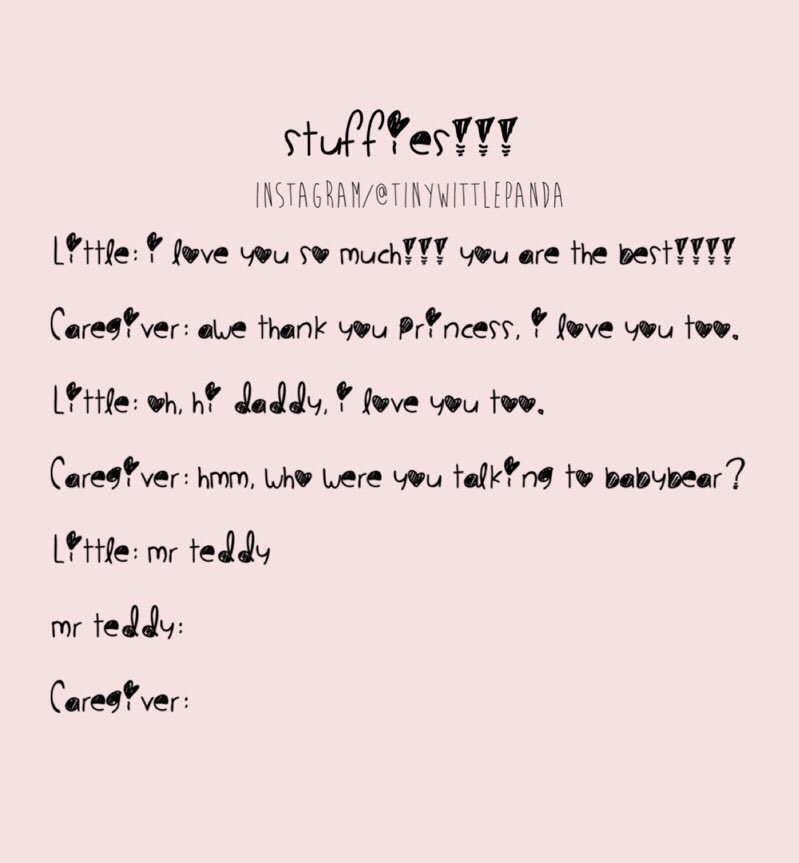 stuffies!!!
INSTAGRAM/@TINYWITTLEPANDA
Little: i love you so much!!! you are the best!!!!
Caregiver: awe thank you princess, i love you too.
Little: oh, hi daddy, i love you too.
Caregiver: hmm, who were you talking to babybear?
Little: mr teddy
mr teddy:
Caregiver: